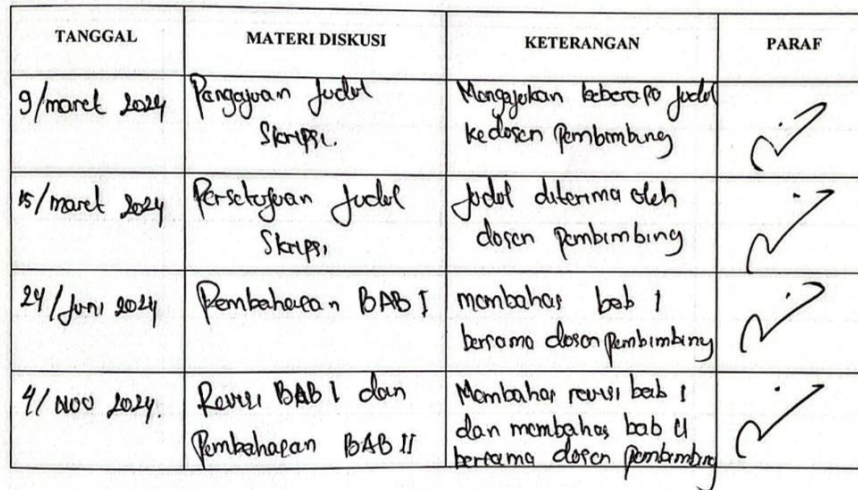 TANGGAL MATERI DISKUSI KETERANGAN PARAF
9/maret 2024 Pengajuan Judul Mengajukan beberapa judul
Skripsi. kedosen Pembimbing
15/maret 2024 Persetujuan Judul Judul diterima oleh
Skripsi dosen pembimbing
24/Juni 2024 Pembahasan BAB I membahas bab 1
bersama dosen Pembimbing
4/ Nov 2024. Revisi BAB I dan Membahas revisi bab 1
Pembahasan BAB II dan membahas bab II
bersama dosen Pembimbing